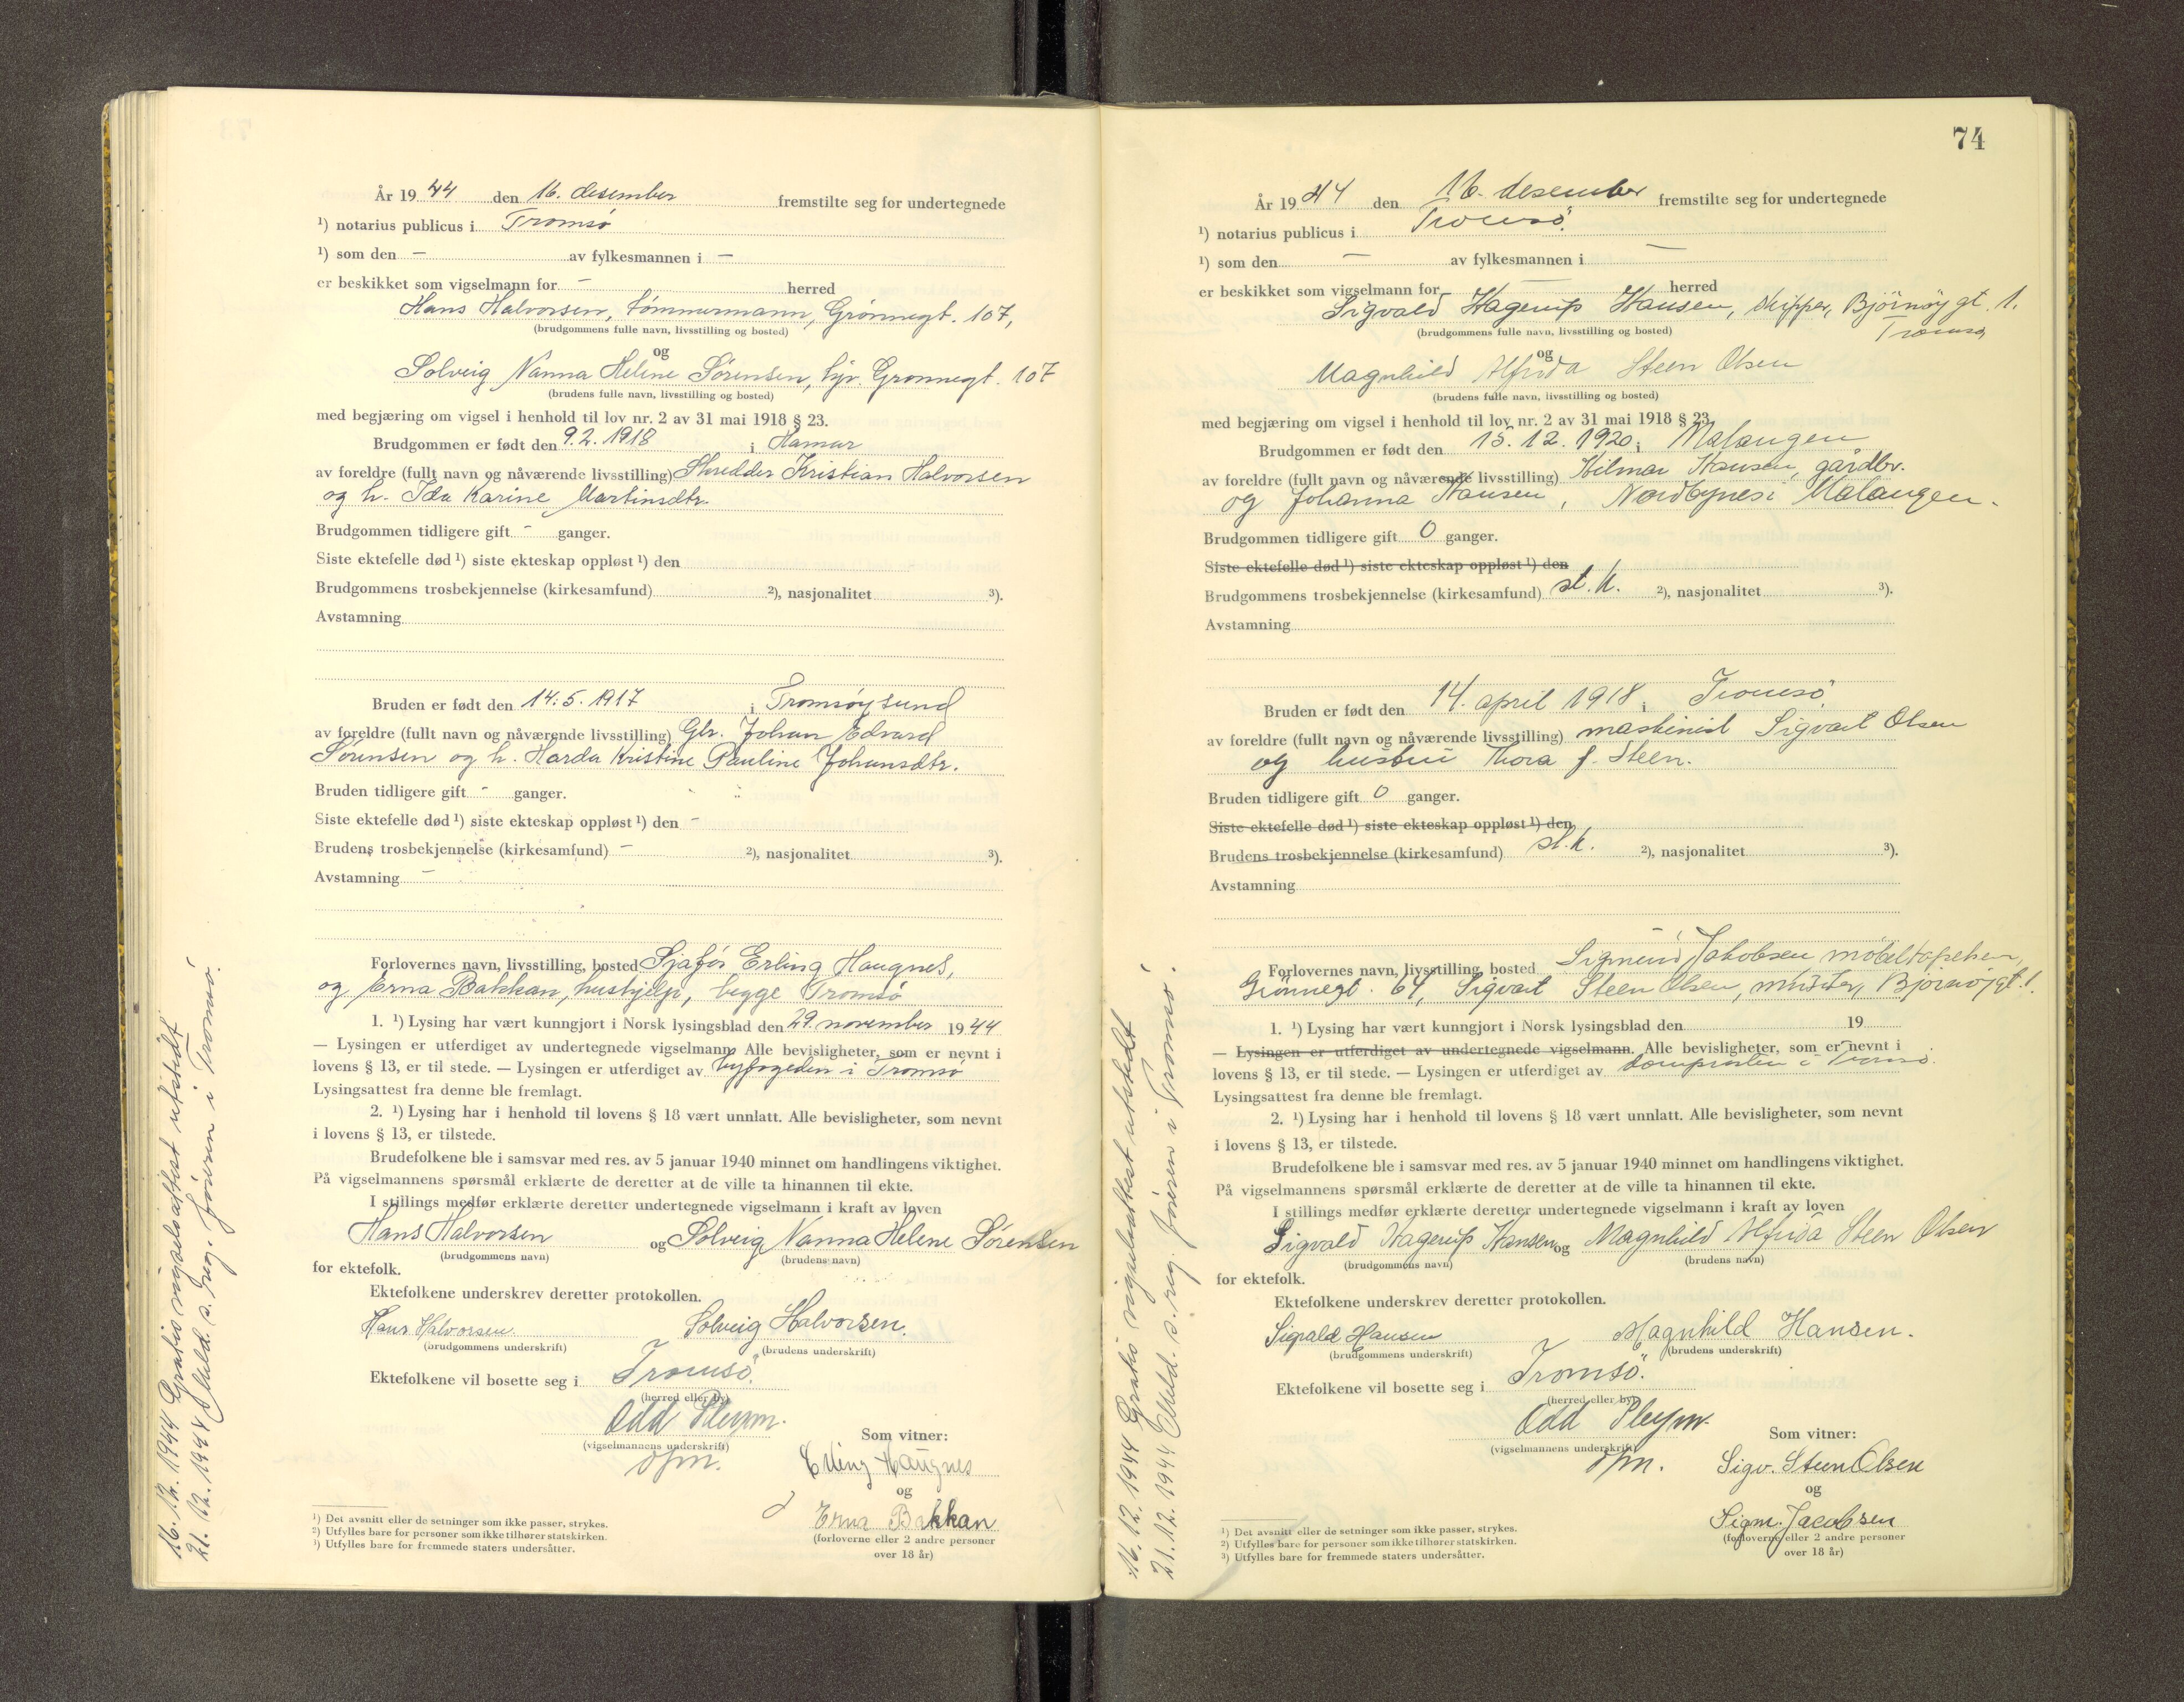 År 1944 den 16. desember fremstilte seg for undertegnede
¹) notarius publicus i Tromsø
¹) som den — av fylkesmannen i —
er beskikket som vigselmann for — herred
Hans Halvorsen, tømmermann, Grønnegt. 107,
(brudgommens fulle navn, livsstilling og bosted)
og
Solveig Nanna Helene Sørensen, hjv. Grønnegt. 107
(brudens fulle navn, livsstilling og bosted)
med begjæring om vigsel i henhold til lov nr. 2 av 31 mai 1918 § 23.
Brudgommen er født den 9.2.1918 i Hamar
av foreldre (fullt navn og nåværende livsstilling) Skredder Kristian Halvorsen
og h. Ida Karine Martinsdtr.
Brudgommen tidligere gift - ganger.
Siste ektefelle død ¹) siste ekteskap oppløst ¹) den
Brudgommens trosbekjennelse (kirkesamfund) ²), nasjonalitet ³).
Avstamning
Bruden er født den 14.5.1917 i Tromsøysund
av foreldre (fullt navn og nåværende livsstilling) Gbr. Johan Edvard
Sørensen og h. Harda Kristine Pauline Johansdtr.
Bruden tidligere gift - ganger.
Siste ektefelle død ¹) siste ekteskap oppløst ¹) den -
Brudens trosbekjennelse (kirkesamfund) — ²), nasjonalitet ³).
Avstamning —
Forlovernes navn, livsstilling, bosted Sjafør Erling Haugnes,
og Erna Bakkan, hushjelp, begge Tromsø
1. ¹) Lysing har vært kunngjort i Norsk lysingsblad den 29. november 1944
— Lysingen er utferdiget av undertegnede vigselmann. Alle bevisligheter, som er nevnt i
lovens § 13, er til stede. — Lysingen er utferdiget av byfogeden i Tromsø
Lysingsattest fra denne ble fremlagt.
2. ¹) Lysing har i henhold til lovens § 18 vært unnlatt. Alle bevisligheter, som nevnt
i lovens § 13, er tilstede.
Brudefolkene ble i samsvar med res. av 5 januar 1940 minnet om handlingens viktighet.
På vigselmannens spørsmål erklærte de deretter at de ville ta hinannen til ekte.
I stillings medfør erklærte deretter undertegnede vigselmann i kraft av loven
Hans Halvorsen og Solveig Nanna Helene Sørensen
(brudgommens navn) (brudens navn)
for ektefolk.
Ektefolkene underskrev deretter protokollen.
Hans Halvorsen. Solveig Halvorsen.
(brudgommens underskrift) (brudens underskrift)
Ektefolkene vil bosette seg i Tromsö.
(herred eller by)
Odd Pleym.
(vigselmannens underskrift)
Som vitner:
Erling Haugnes
og
Erna Bakkan
(forloverne eller 2 andre personer
over 18 år)
¹) Det avsnitt eller de setninger som ikke passer, strykes.
²) Utfylles bare for personer som ikke tilhører statskirken.
³) Utfylles bare for fremmede staters undersåtter.
16.12.1944 Gratis vigselsattest utstedt
21.12.1944 s. reg. føreren i Tromsø.
74
År 1944 den 16. desember fremstilte seg for undertegnede
¹) notarius publicus i Tromsö.
¹) som den — av fylkesmannen i —
er beskikket som vigselmann for — herred
Sigvald Hagerup Hansen, skipper, Björnöygt. 1.
Tromsö
(brudgommens fulle navn, livsstilling og bosted)
og
Magnhild Alfrida Steen Olsen
(brudens fulle navn, livsstilling og bosted)
med begjæring om vigsel i henhold til lov nr. 2 av 31 mai 1918 § 23.
Brudgommen er født den 15.12.1920 i Malangen
av foreldre (fullt navn og nåværende livsstilling) Hilmar Hansen, gårdbr.
og Johanna Hansen, Nordbynes i Malangen.
Brudgommen tidligere gift 0 ganger.
Siste ektefelle død ¹) siste ekteskap oppløst ¹) den
Brudgommens trosbekjennelse (kirkesamfund) st.k. ²), nasjonalitet ³).
Avstamning
Bruden er født den 14. april 1918 i Tromsö
av foreldre (fullt navn og nåværende livsstilling) maskinist Sigvart Olsen
og hustru Thora f. Steen.
Bruden tidligere gift 0 ganger.
Siste ektefelle død ¹) siste ekteskap oppløst ¹) den
Brudens trosbekjennelse (kirkesamfund) st.k. ²), nasjonalitet ³).
Avstamning
Forlovernes navn, livsstilling, bosted Sigmund Jakobsen möbeltapetser,
Grönnegt. 64, Sigvart Steen Olsen, Björnöygt. 1.
1. ¹) Lysing har vært kunngjort i Norsk lysingsblad den 19
— Lysingen er utferdiget av undertegnede vigselmann. Alle bevisligheter, som er nevnt i
lovens § 13, er til stede. — Lysingen er utferdiget av domprosten i Tromsö.
Lysingsattest fra denne ble fremlagt.
2. ¹) Lysing har i henhold til lovens § 18 vært unnlatt. Alle bevisligheter, som nevnt
i lovens § 13, er tilstede.
Brudefolkene ble i samsvar med res. av 5 januar 1940 minnet om handlingens viktighet.
På vigselmannens spørsmål erklærte de deretter at de ville ta hinannen til ekte.
I stillings medfør erklærte deretter undertegnede vigselmann i kraft av loven
Sigvald Hagerup Hansen og Magnhild Alfrida Steen Olsen
(brudgommens navn) (brudens navn)
for ektefolk.
Ektefolkene underskrev deretter protokollen.
Sigvald Hansen Magnhild Hansen.
(brudgommens underskrift) (brudens underskrift)
Ektefolkene vil bosette seg i Tromsö.
(herred eller by)
Odd Pleym
(vigselmannens underskrift)
Som vitner:
Sigv. Steen Olsen
og
Sigm. Jacobsen
(forloverne eller 2 andre personer
over 18 år)
¹) Det avsnitt eller de setninger som ikke passer, strykes.
²) Utfylles bare for personer som ikke tilhører statskirken.
³) Utfylles bare for fremmede staters undersåtter.
16.12.1944 Gratis vigselsattest utstedt
21.12.1944 s. reg. føreren i Tromsø.